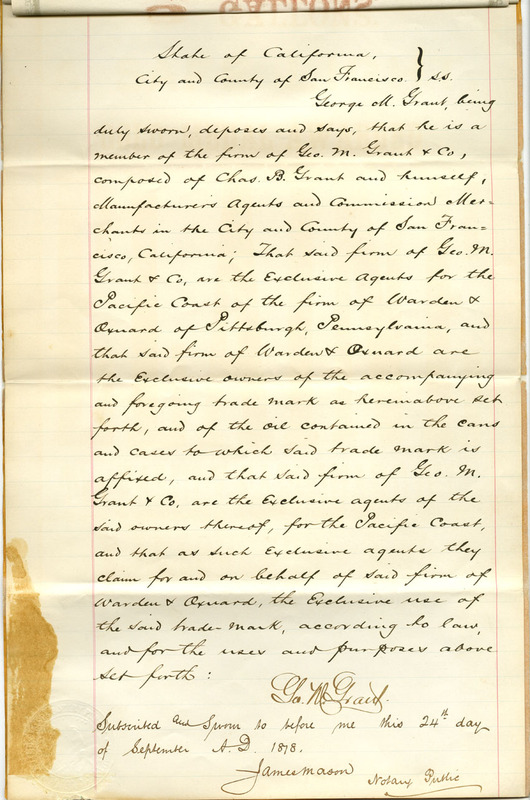 State of California,
City and County of San Francisco } s.s.
George M. Grant, being
duly sworn, deposes and says, that he is a
member of the firm of Geo. M. Grant & Co,
composed of Chas. B. Grant and himself,
Manufacturers Agents and Commission Mer-
chants in the City and County of San Fran-
cisco, California; That said firm of Geo. M.
Grant & Co, are the Exclusive Agents for the
Pacific Coast of the firm of Warden &
Oxnard of Pittsburgh, Pennsylvania, and
that said firm of Warden & Oxnard are
the Exclusive owners of the accompanying
and foregoing trade mark as hereinabove set
forth, and of the oil contained in the cans
and cases to which said trade mark is
affixed, and that said firm of Geo. M.
Grant & Co, are the Exclusive agents of the
said owners thereof, for the Pacific Coast,
and that as such Exclusive agents they
claim for and on behalf of said firm of
Warden & Oxnard, the Exclusive use of
the said trade-mark, according to law,
and for the uses and purposes above
set forth:
Geo. M. Grant.
Subscribed and Sworn to before me this 24th day
of September A.D. 1878.
James Mason Notary Public